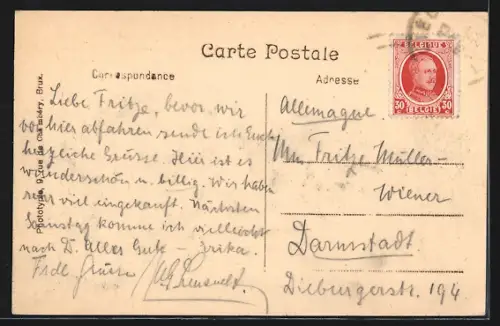 Carte Postale
Correspondance
Adresse
BELGIQUE
30 30
BELGIË
Liebe Fritze, bevor wir
von hier abfahren sende ich Euch
herzliche Grüsse. Hier ist es
wunderschön u. billig. Wir haben
sehr viel eingekauft. Nächsten
Samstag komme ich vielleicht
nach D. Alles Gute – Irika.
Frdl. Grüsse
Allemagne
Fritze Müller-
Wiener
Darmstadt
Dieburgerstr. 194
Phototypie, 9, rue de Brux.